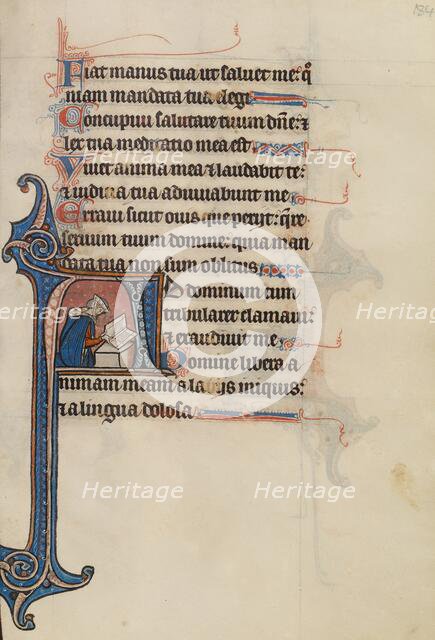 184
Fiat manus tua ut saluet me: qm̄
niam mandata tua elegi
Concupiui salutare tuum dn̄e: &
lex tua meditatio mea est
Viuet anima mea & laudabit te:
& iudicia tua adiuuabunt me
Erraui sicut ouis que periit: q̄re
seruum tuum domine: quia man
data tua non sum oblitus
Ad dominum cum
tribularer clamaui:
& exaudiuit me
Domine libera a
nimam meam a labijs iniquis:
& a lingua dolosa
Heritage Heritage Heritage
Heritage Heritage Heritage